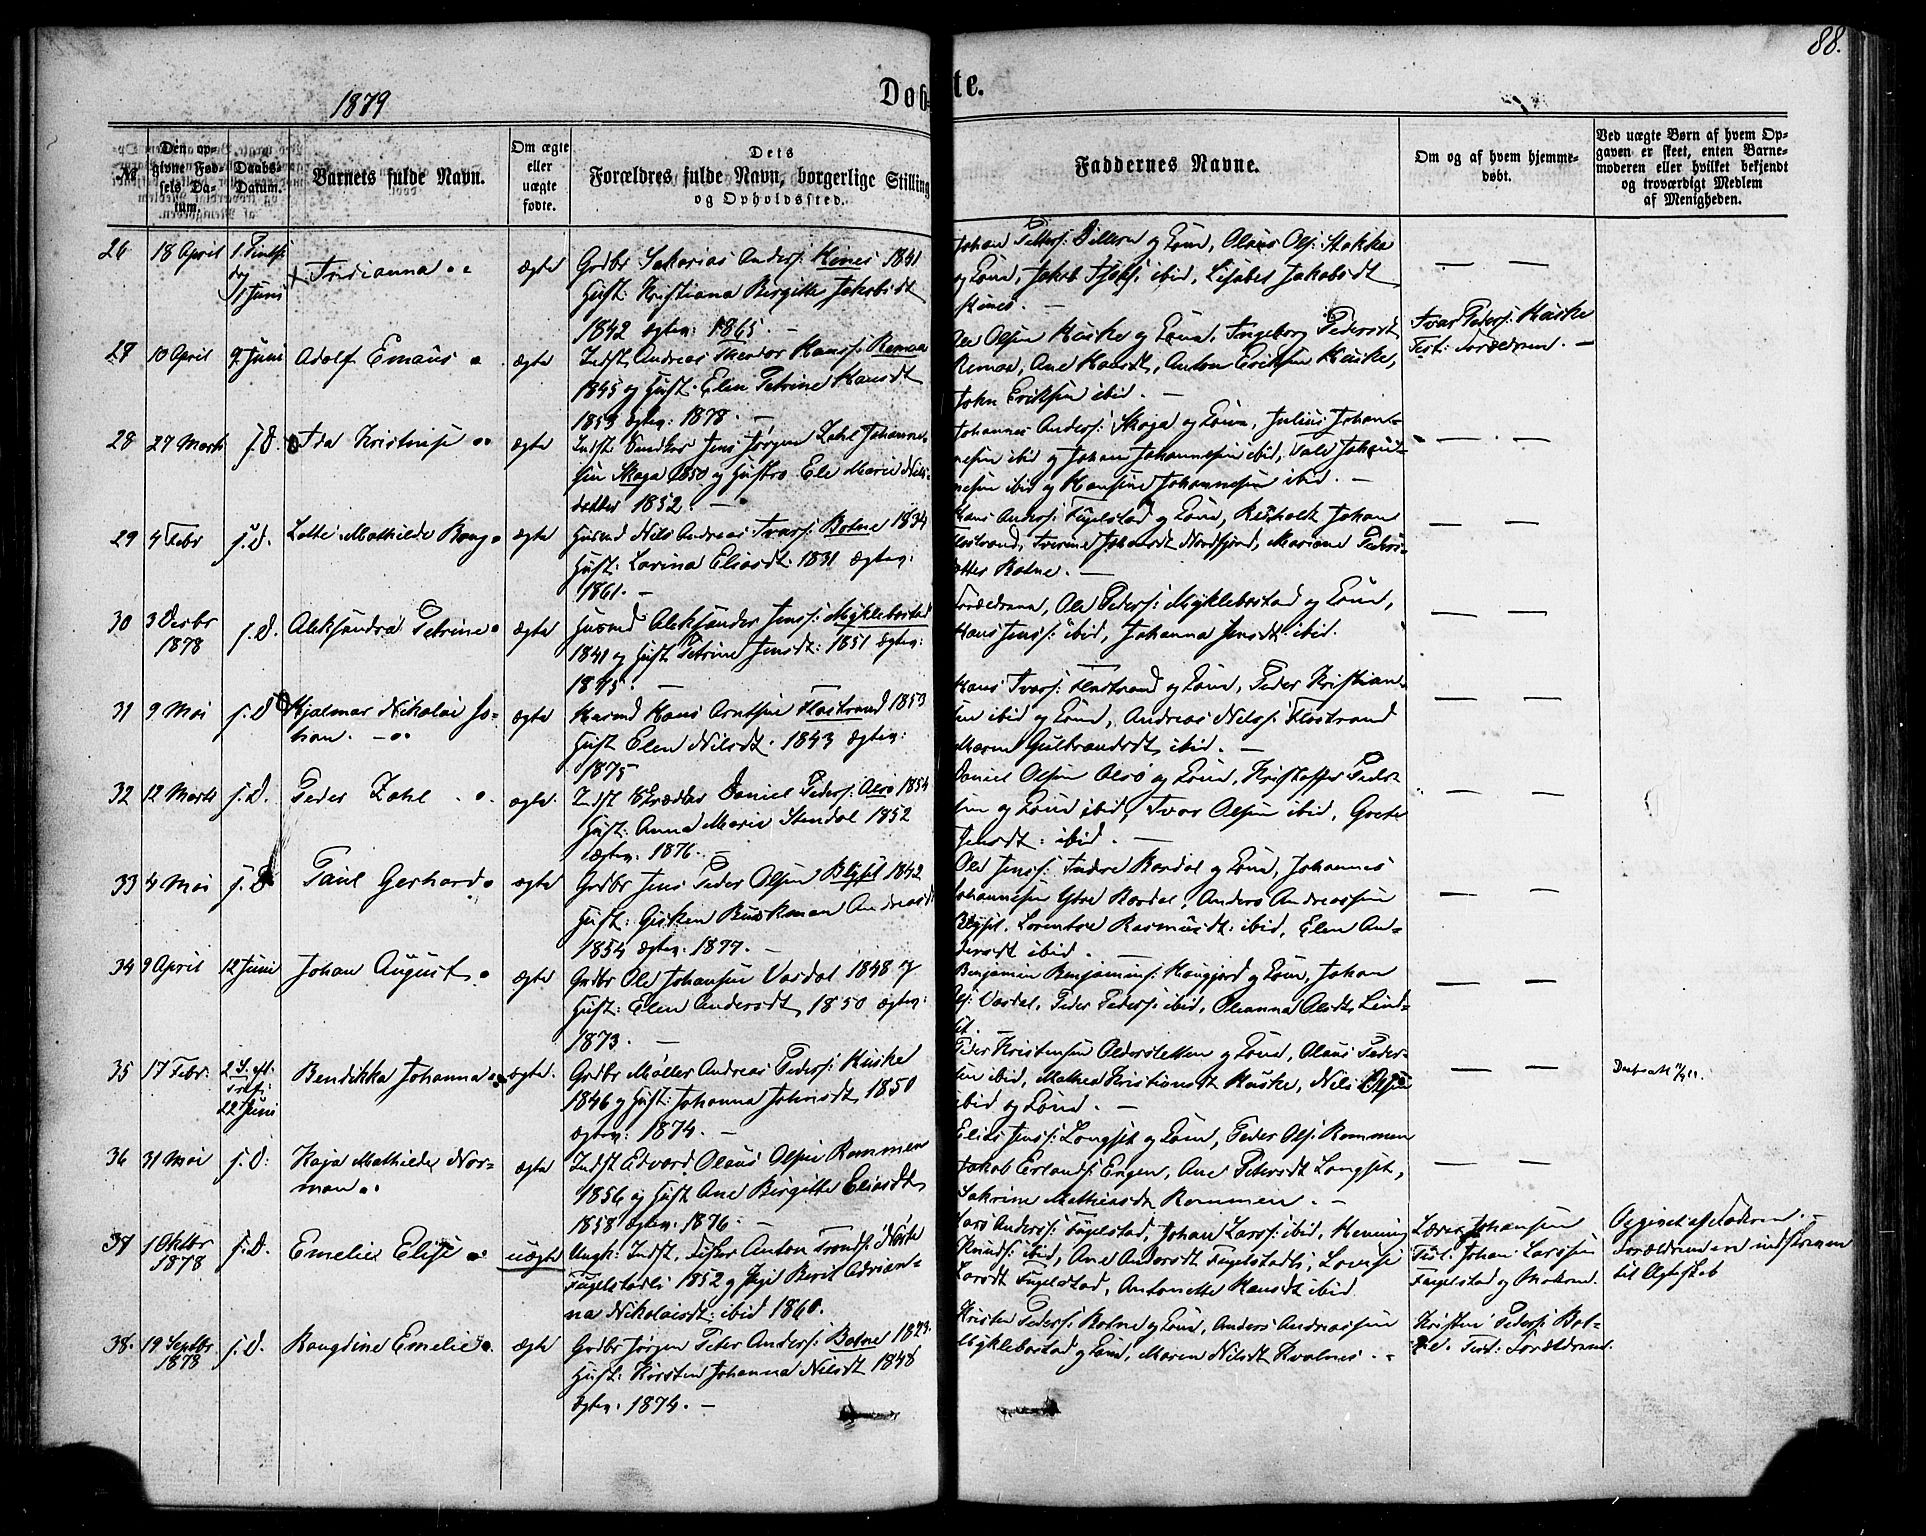 88.
1879
Døb-te.
№
Den op-
givne Fød-
sels Da-
tum.
Daabs-
Datum.
Barnets fulde Navn.
Om ægte
eller
uægte
fødte.
Dets
Forældres fulde Navn, borgerlige Stilling
og Opholdssted.
Faddernes Navne.
Om og af hvem hjemme-
døbt.
Ved uægte Børn af hvem Op-
gaven er skeet, enten Barne-
moderen eller hvilket bekjendt
og troværdigt Medlem
af Menigheden.
26
18 April
1. Pintse
dag
1 Juni
Fridianna
ægte
Grdbr Sakarias Anders: Hines 1841
Hust: Kristiana Birgitte Jakobsdt
1842 ægtev: 1865. —
Johan Petters: og Kone, Olaus Ols: Stokke
og Kone, Jakob ibid, Lisabet Jakobsdt
Hines. —
— —
27
10 April
9 Juni
Adolf Emaus
ægte
Indst Andreas Theodor Hans: Remaa
1845 og Hust. Elen Petrine Hansdt
1853 ægtev: 1878. —
Ole Olsen Kuske og Kone, Ingeborg Pedersdt
Remaa, Ane Hansdt, Anton Eriksen Kuske,
John Eriksen ibid. —
Ivar Peders: Kuske
Test: Forældrene. —
28
27 Marts
s. D.
Ida Kristine
ægte
Indst Jens Jørgen Zahl Johannes-
sen Skaga 1850 og Hustro Ele Marie Nils-
datter 1852. —
Johannes Anders: Skaga og Kone, Julius Johan-
nesen ibid og Johan Johannesen ibid, Johan-
nesen ibid og Hansine Johannesen ibid. —
— —
29
4 Febr
s. D.
Lotte Mathilde Bang
ægte
Husmd Nils Andreas Ivars: Botne 1834
Hust: Larina Eliasdt. 1831 ægtev:
1861. —
Hans Anders: Fugelstad og Kone, Johan
Flostrand, Iverine Johansdt Nordfjord, Mariane Peders-
datter Botne. —
— —
30
3 Desbr
1878
s. D.
Aleksandra Petrine
ægte
Husmd Aleksander Jens: Myklebostad
1841 og Hust Petrine Jensdt: 1851 ægtev:
1875. —
Forældrene, Ole Peders: Myklebostad og Kone,
Hans Jens: ibid, Johanna Jensdt ibid.
— —
31
9 Mai
s. D.
Hjalmar Nikolai Jo-
han. —
ægte
Husmd Hans Arntsen Flostrand 1853
Hust Elen Nilsdt. 1843 ægtev:
1875
Hans Ivars: Flostrand og Kone, Peder Kristian-
sen ibid og Kone, Andreas Nils: Flostrand
Maren Gulbrandsdt ibid. —
— —
32
12 Marts
s. D.
Peder Zahl
ægte.
Indst Skrædder Daniel Peders: Alsø 1854
Hust: Anna Marie Stendal 1852
ægtev: 1876. —
Daniel Olsen Alsø og Kone, Kristoffer Peder-
sen og Kone ibid, Ivar Olsen ibid, Grete
Jensdt: ibid. —
— —
33
4 Mai
s. D
Paul Gerhard
ægte
Grdbr Jens Peder Olsen Blyset 1842
Hust: Gisken Buskman Andreasdt
1854 ægtev: 1877. —
Ole Jens: Indre Kardal og Kone, Johannes
Johannesen Ytre Kardal, Anders Andreassen
Blyset, Lorentse Rasmusdt: ibid, Elen An-
dersdt ibid. —
— —
34
9 April
12 Juni
Johan August
ægte
Grdbr Ole Johansen Vasdal 1848 og
Hust: Elen Andersdt, 1850 ægtev:
1873. —
Benjamin Benjamins: Haugjord og Kone, Johan
Ols: Vasdal, Peder Peders: ibid, Oleanna Olsdt, Lind-
set.
— —
35
17 Febr:
2 S. eft.
Tref:
22 Juni
Bendikka Johanna
ægte.
Grdbr Møller Andreas Peders: Kuske
1846 og Hust: Johanna Johnsdt, 1850
ægtev: 1874. —
Peder Kristensen Oldersletten og Kone, Olaus Peder-
sen ibid, Mathea Kristiansdt Kuske, Nils Olsen
ibid og Kone. —
— —
36
31 Mai
s. D:
Kaja Mathilde Nor-
man
ægte
Indst Edvard Olaus Olsen Rommen
1856 og Hust Ane Birgitte Eliasdt,
1858 ægtev: 1876. —
Elias Jens: Langset og Kone, Peder Ols: Rommen
Jakob Erlands: Engen, Ane Petersdt Langset,
Sakrine Mathiasdt Rommen. —
— —
37
1 Oktbr
1878
s. D.
Emelie Elise
uægte
Ungk: Indst, Fisker Anton Tronds:
Fugelstadli 1852 og Pige Berit Adrian-
na Nikolaisdt: ibid 1860.
Lars Anders: Fugelstad, Johan Lars: ibid, Henning
Knuds: ibid, Ane Andersdt Fugelstadli, Lovise
Larsdt Fugelstad, Antonette Hansdt ibid.
Lærer Johansen
Test: Johan Larsen
Fugelstad og Moderen.
Opgivet af Faderen. —
Forældrene ere indskrevne
til Ægteskab
38.
19 Septbr
1878
s. D.
Bangdine Emelie
ægte
Grdbr Jørgen Peter Anders: Botne 1823
Hust: Kirsten Johanna Nilsdt 1848
ægtev: 1874. —
Kristen Peders: Botne og Kone, Anders Andreassen
Myklebostad og Kone, Maren Nilsdt Kvalnes. —
Kristen Peders: Bot-
ne. Test: Forældrene.